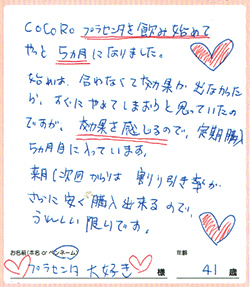 COCORO プラセンタを飲み始めて
やっと5ヵ月になりました。
始めは、合わなくて効果が出なかったら、すぐにやめてしまおうと思っていたの
ですが、効果を感じるので、定期購入
5ヵ月目に入っています。
来月(次回)からは 割り引き率が
さらに安く購入出来るので
うれしい限りです。
お名前(本名 or ペンネーム) 年齢
プラセンタ大好き 様 41 歳